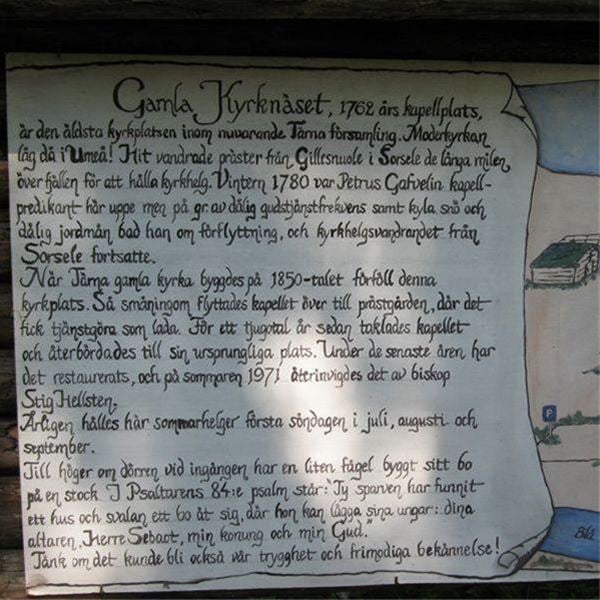 Gamla Kyrknäset, 1762 års kapellplats,
är den äldsta kyrkplatsen inom nuvarande Tärna församling. Moderkyrkan
låg då i Umeå! Hit vandrade präster från Gillesnuole i Sorsele de långa milen
över fjällen för att hålla kyrkhelg. Vintern 1780 var Petrus Gafvelin kapell-
predikant här uppe men på gr. av dålig gudstjänstfrekvens samt kyla snö och
dålig jordmån bad han om förflyttning, och kyrkhelgsvandrandet från
Sorsele fortsatte.
När Tärna gamla kyrka byggdes på 1850-talet förföll denna
kyrkplats. Så småningom flyttades kapellet över till prästgården, där det
fick tjänstgöra som lada. För ett tjugotal år sedan taklades kapellet
och återbördades till sin ursprungliga plats. Under de senaste åren har
det restaurerats, och på sommaren 1971 återinvigdes det av biskop
Stig Hellsten.
Årligen hålles här sommarhelger första söndagen i juli, augusti och
september.
Till höger om dörren vid ingången har en liten fågel byggt sitt bo
på en stock I Psaltarens 84:e psalm står: "Ty sparven har funnit
ett hus och svalan ett bo åt sig, där hon kan lägga sina ungar: dina
altaren, Herre Sebaot, min konung och min Gud."
Tänk om det kunde bli också vår trygghet och frimodiga bekännelse!
P